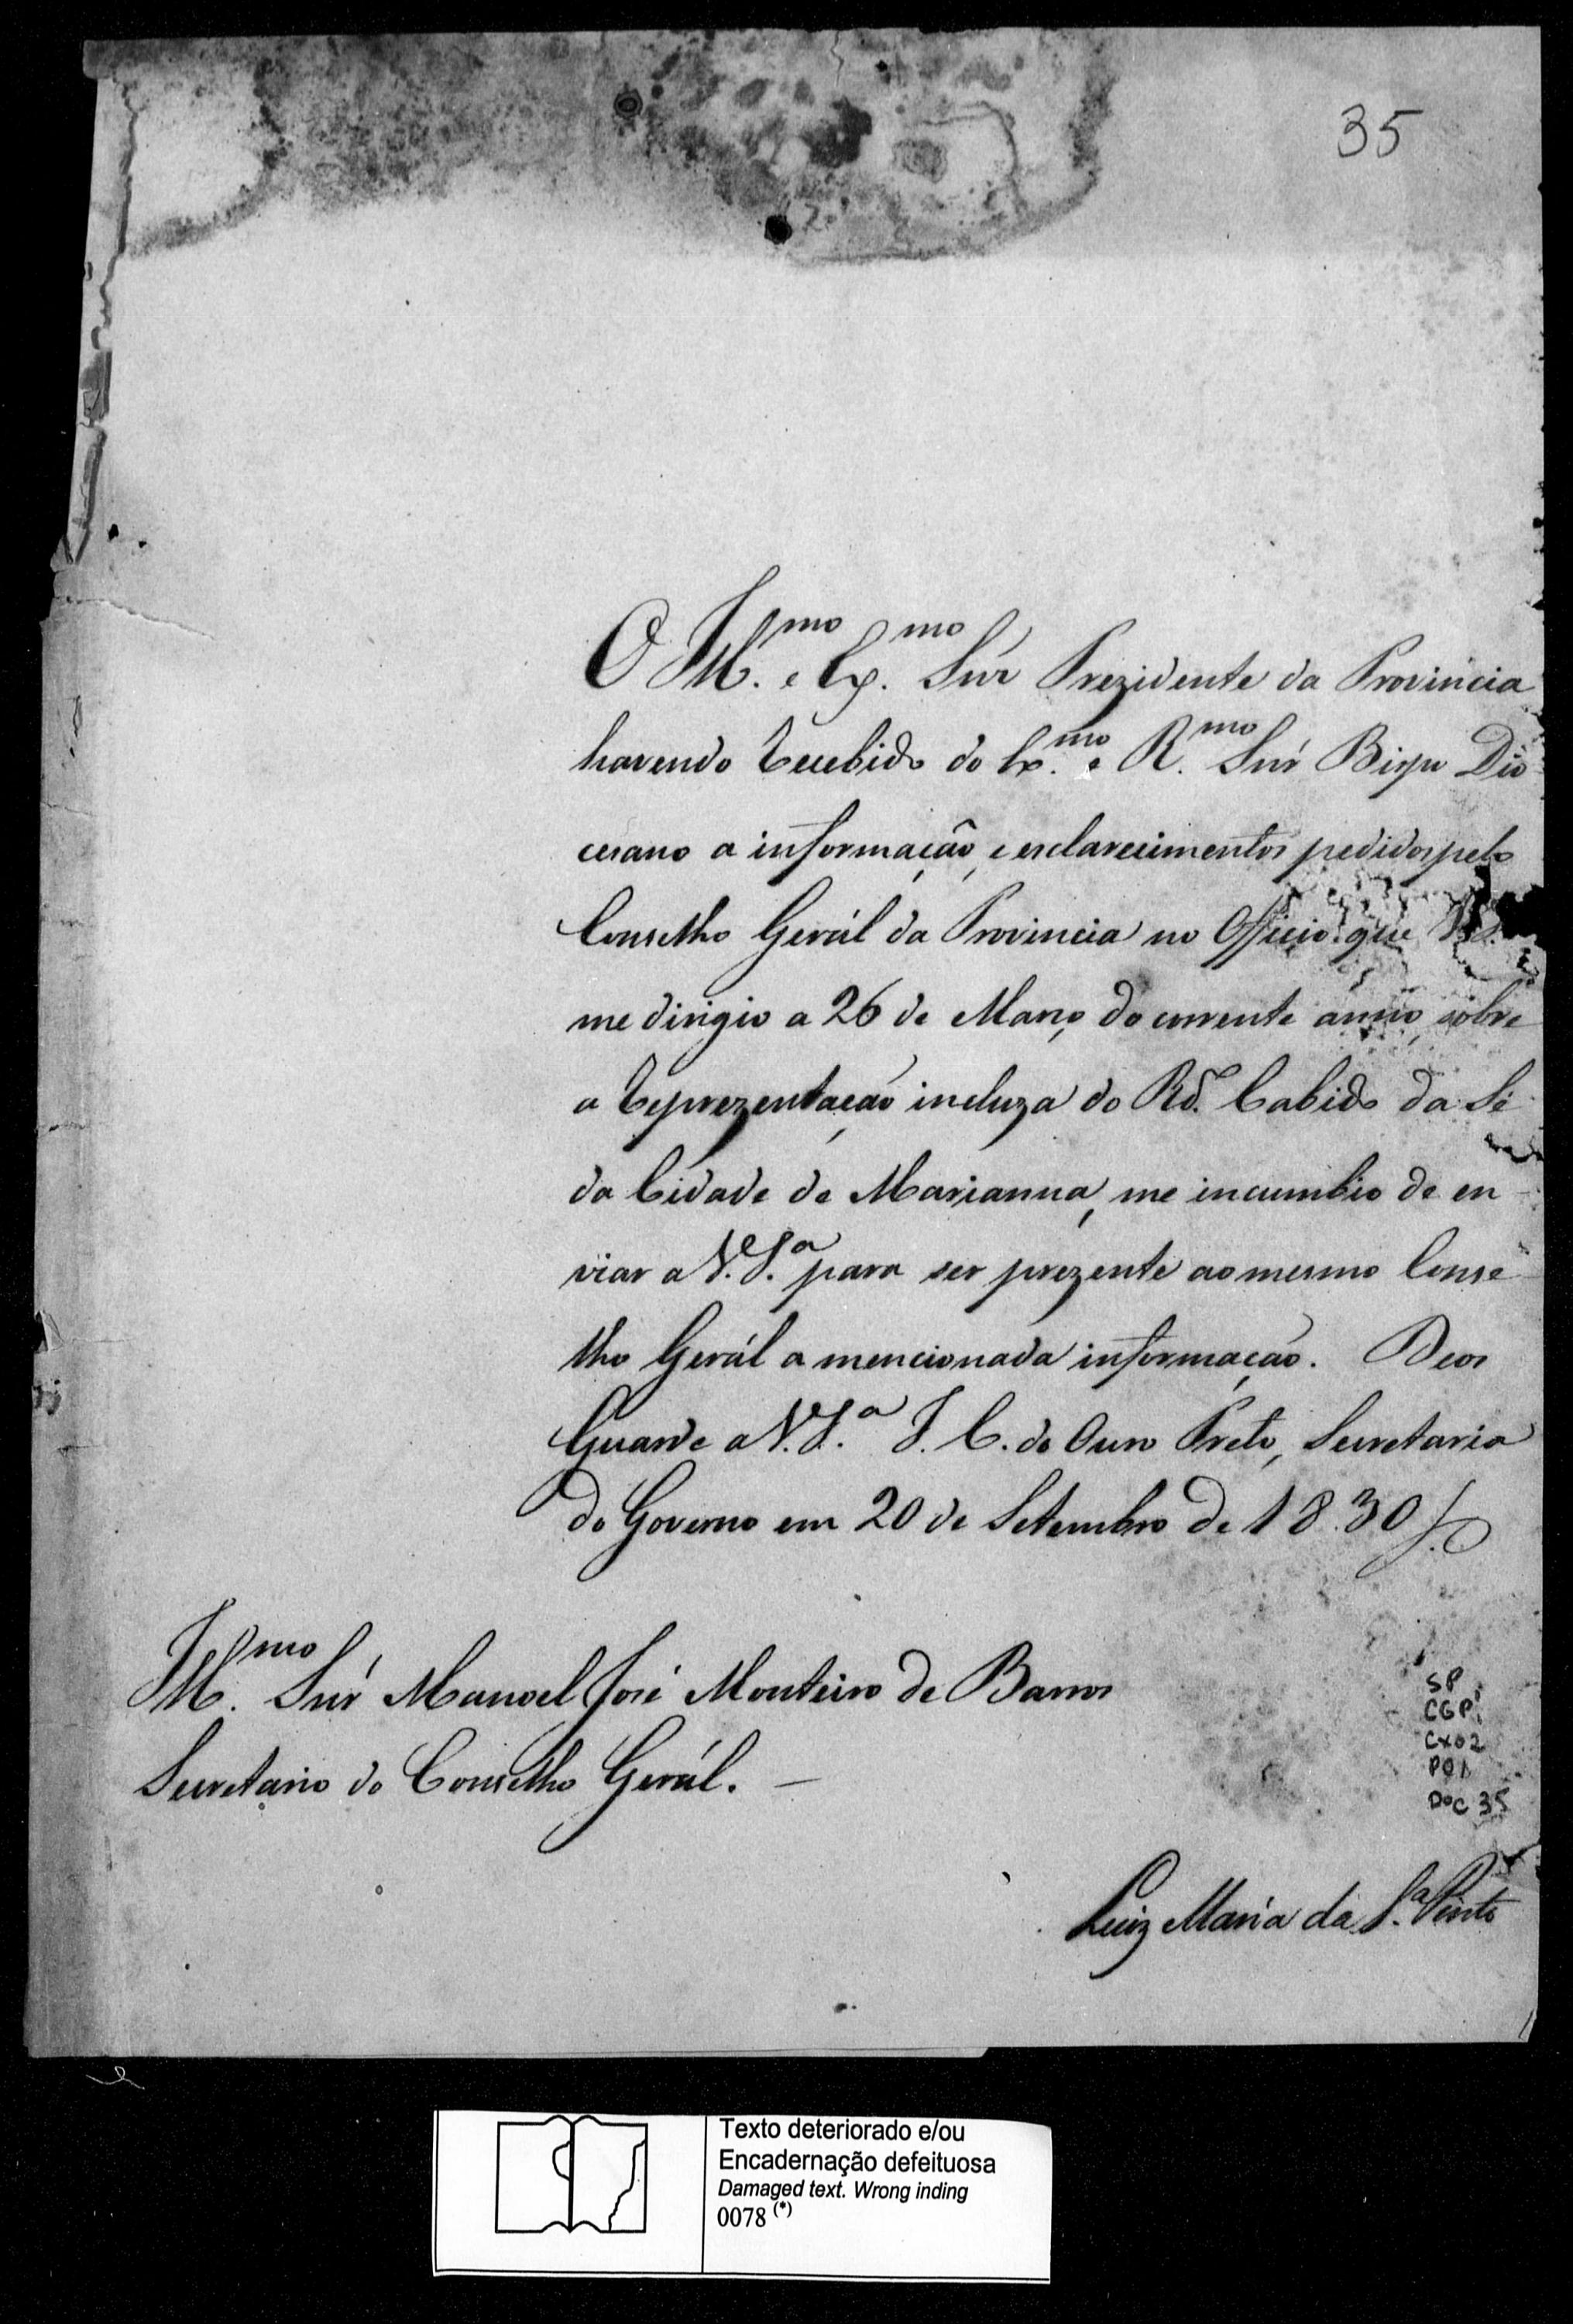 35
O Ill.mo e Ex.mo Snr Prezidente da Provincia
havendo recebido do Ex.mo e R.mo Snr Bispo Dio
cesano a informação, e esclarecimentos pedidos pelo
Conselho Gerál da Provincia no Officio que V.S.
me dirigio a 26 de Março do corrente anno sobre
a reprezentação incluza do Rd.o Cabido da Sé
da Cidade de Marianna, me incumbio de en
viar a V. S.a para ser prezente ao mesmo Conse
lho Gerál a mencionada informação. Deos
Guarde a V. S.a I. C. do Ouro Preto, Secretaria
do Governo em 20 de Setembro de 1830
Ill.mo Snr Manoel José Monteiro de Barros
Secretario do Conselho Gerál. —
SP
CGP1
CX02
P01
DOC 35
Luiz Maria da S.a Pinto
Texto deteriorado e/ou
Encadernação defeituosa
Damaged text. Wrong inding
0078 (*)